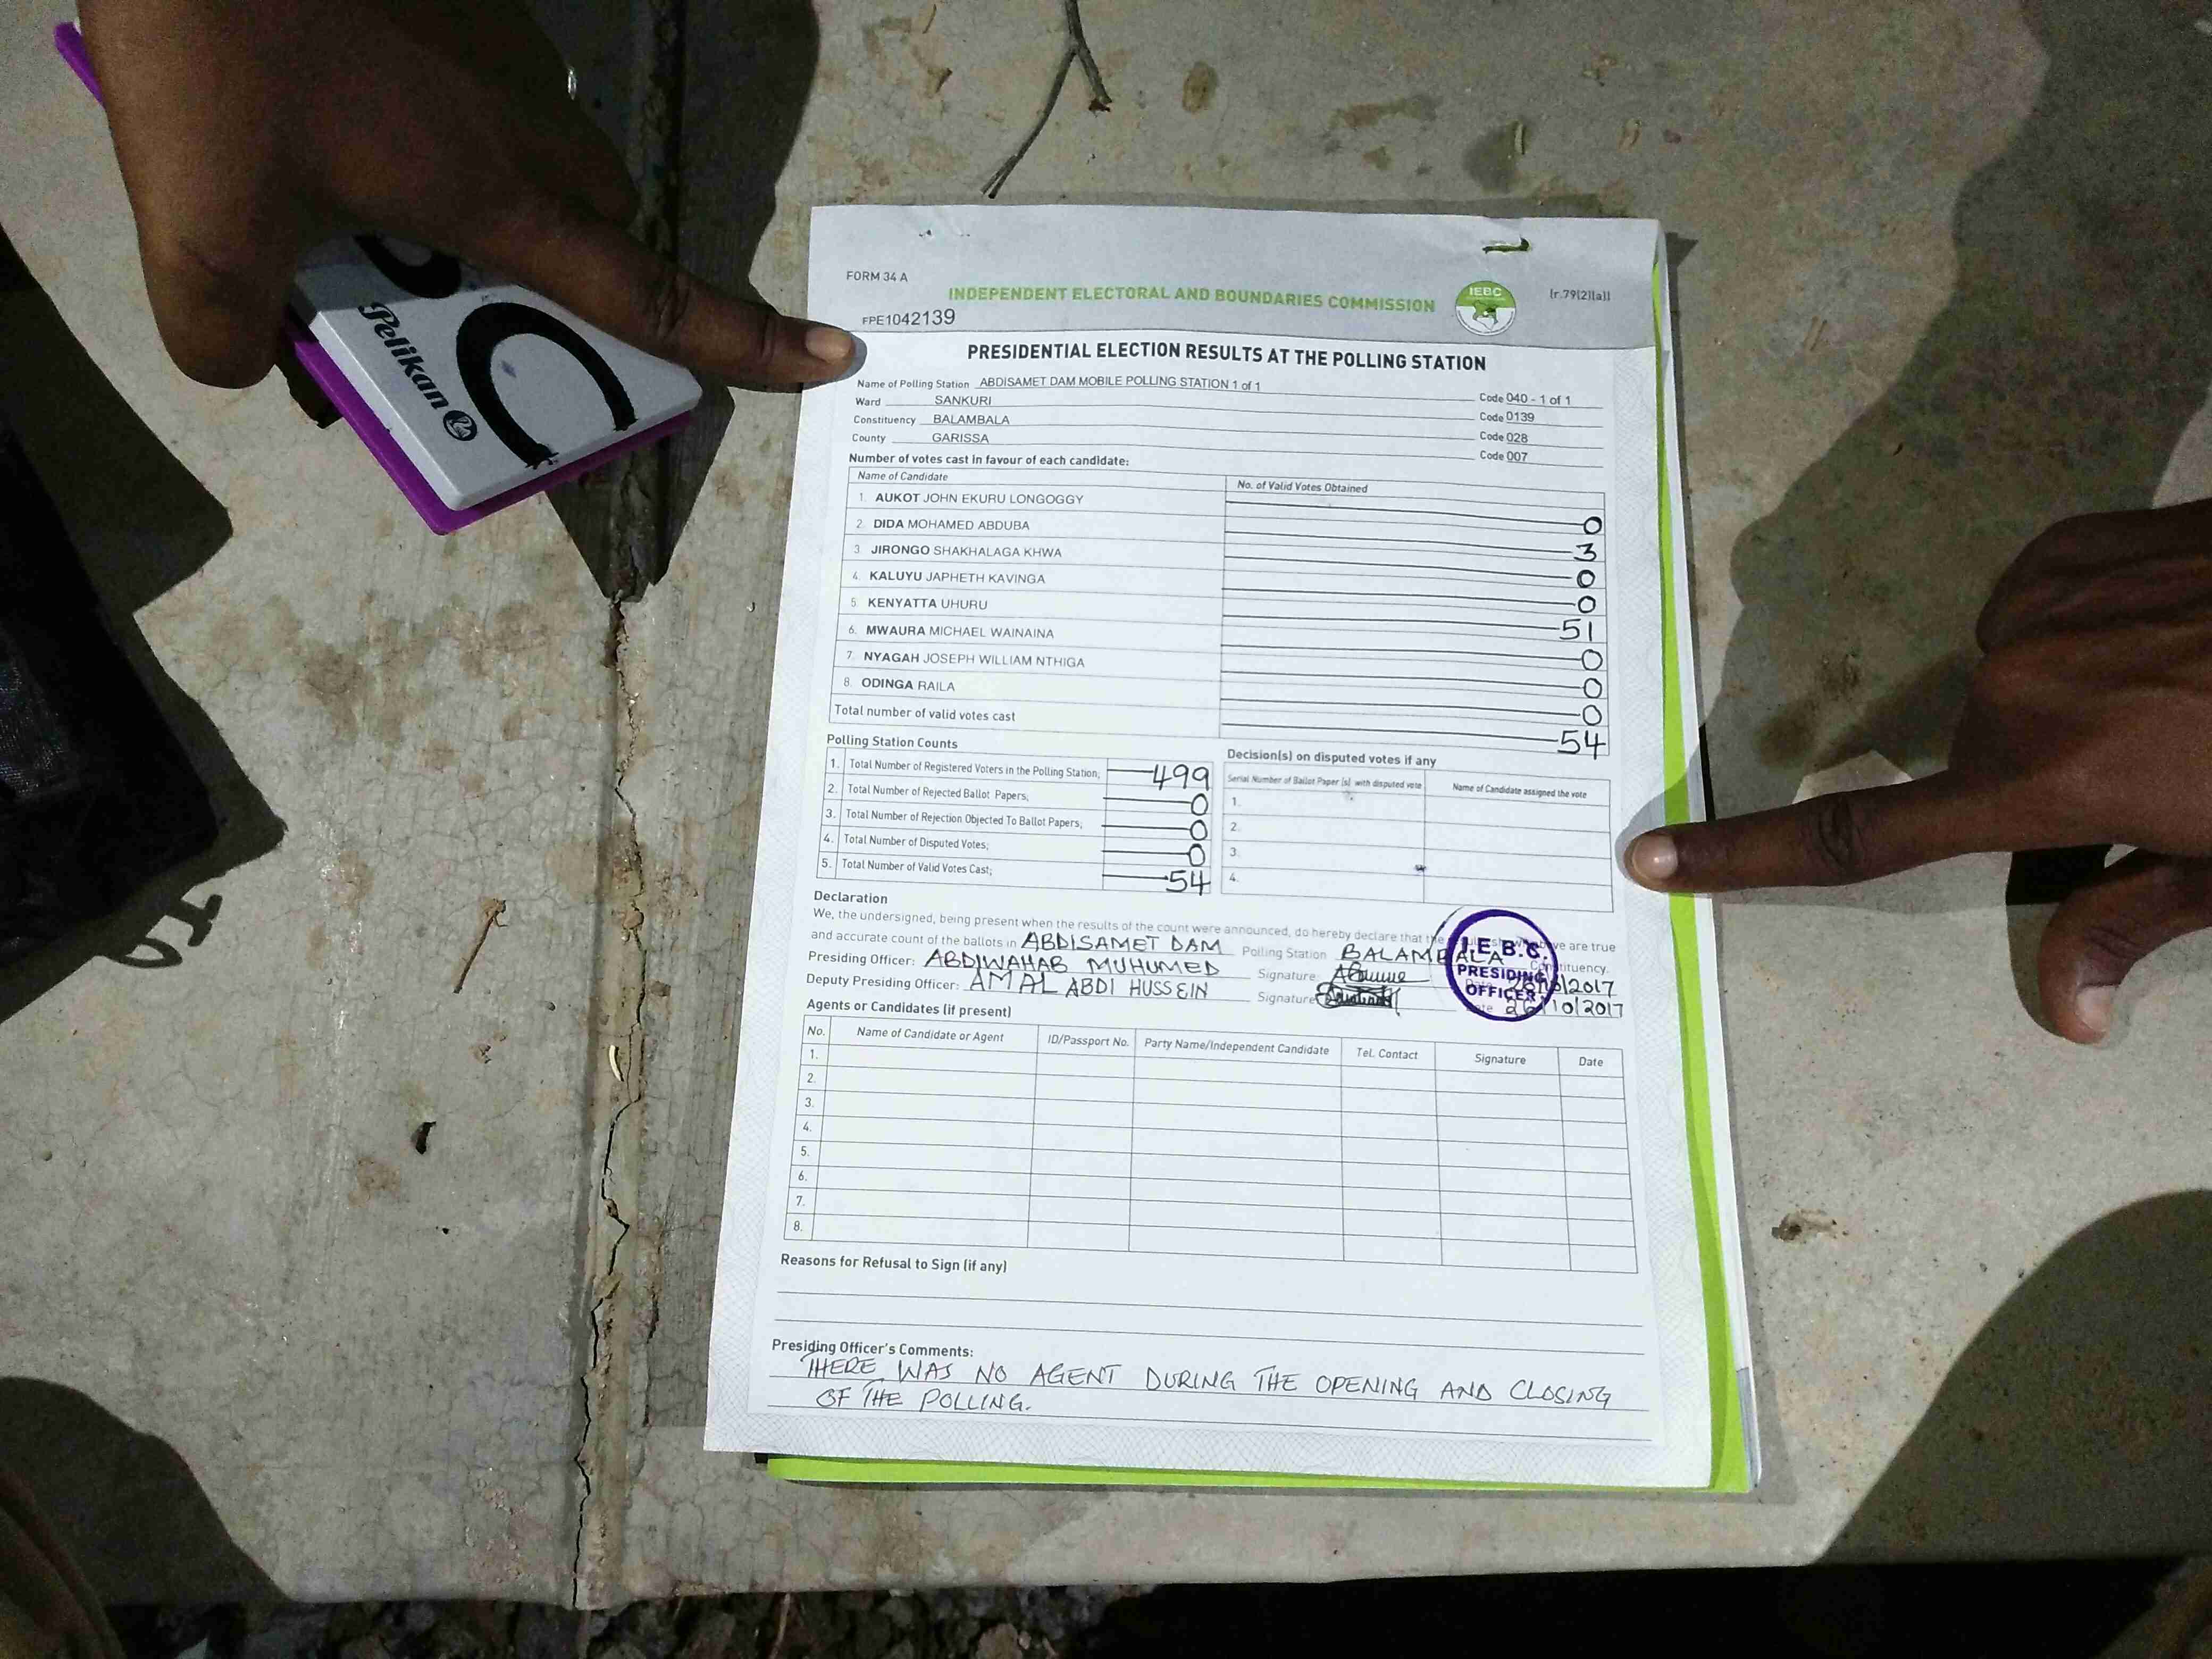 FORM 34 A
INDEPENDENT ELECTORAL AND BOUNDARIES COMMISSION
IEBC
(r.79(2)(a))
FPE1042139
PRESIDENTIAL ELECTION RESULTS AT THE POLLING STATION
Name of Polling Station ABDISAMET DAM MOBILE POLLING STATION 1 of 1 Code 040 - 1 of 1
Ward SANKURI Code 0139
Constituency BALAMBALA Code 028
County GARISSA Code 007
Number of votes cast in favour of each candidate:
Name of Candidate No. of Valid Votes Obtained
1. AUKOT JOHN EKURU LONGOGGY 0
2. DIDA MOHAMED ABDUBA 3
3. JIRONGO SHAKHALAGA KHWA 0
4. KALUYU JAPHETH KAVINGA 0
5. KENYATTA UHURU 51
6. MWAURA MICHAEL WAINAINA 0
7. NYAGAH JOSEPH WILLIAM NTHIGA 0
8. ODINGA RAILA 0
Total number of valid votes cast 54
Polling Station Counts
1. Total Number of Registered Voters in the Polling Station; 499
2. Total Number of Rejected Ballot Papers; 0
3. Total Number of Rejection Objected To Ballot Papers; 0
4. Total Number of Disputed Votes; 0
5. Total Number of Valid Votes Cast; 54
Decision(s) on disputed votes if any
Serial Number of Ballot Paper (s) with disputed vote Name of Candidate assigned the vote
1.
2.
3.
4.
Declaration
We, the undersigned, being present when the results of the count were announced, do hereby declare that the are true
and accurate count of the ballots in ABDISAMET DAM Polling Station BALAMBALA Constituency.
Presiding Officer: ABDIWAHAB MUHUMED Signature Date 26/10/2017
Deputy Presiding Officer: AMAL ABDI HUSSEIN Signature Date 26/10/2017
I.E.B.C.
PRESIDING
OFFICER
Agents or Candidates (if present)
No. Name of Candidate or Agent ID/Passport No. Party Name/Independent Candidate Tel. Contact Signature Date
1.
2.
3.
4.
5.
6.
7.
8.
Reasons for Refusal to Sign (if any)
Presiding Officer's Comments:
THERE WAS NO AGENT DURING THE OPENING AND CLOSING
OF THE POLLING.
Pelikan